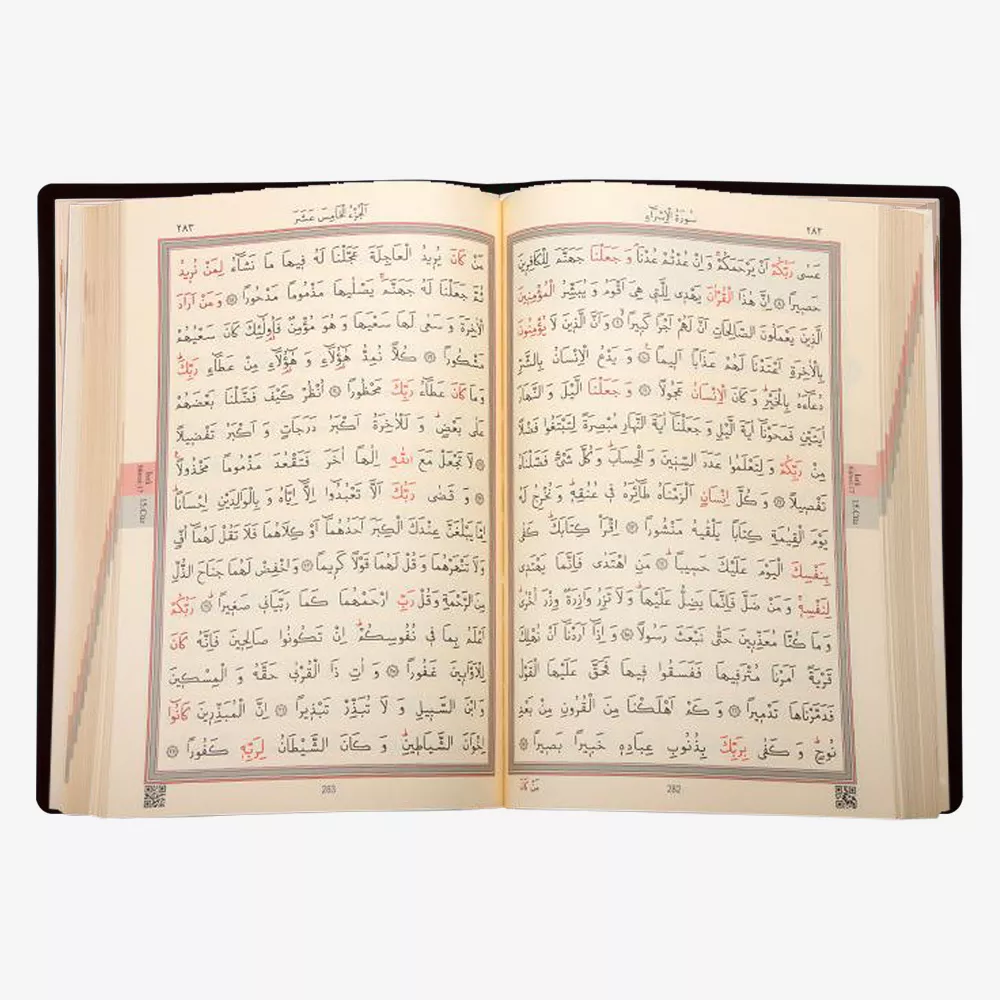 سُورَةُ الْاِسْرَاءِ
٢٨٢
عَسٰى رَبُّكُمْ اَنْ يَرْحَمَكُمْۚ وَاِنْ عُدْتُمْ عُدْنَاۢ وَجَعَلْنَا جَهَنَّمَ لِلْكَافِر۪ينَ
حَص۪يرًا ﴿٨﴾ اِنَّ هٰذَا الْقُرْاٰنَ يَهْد۪ي لِلَّت۪ي هِيَ اَقْوَمُ وَيُبَشِّرُ الْمُؤْمِن۪ينَ
الَّذ۪ينَ يَعْمَلُونَ الصَّالِحَاتِ اَنَّ لَهُمْ اَجْرًا كَب۪يرًاۙ ﴿٩﴾ وَاَنَّ الَّذ۪ينَ لَا يُؤْمِنُونَ
بِالْاٰخِرَةِ اَعْتَدْنَا لَهُمْ عَذَابًا اَل۪يمًا۟ ﴿١٠﴾ وَيَدْعُ الْاِنْسَانُ بِالشَّرِّ
دُعَٓاءَهُ بِالْخَيْرِۜ وَكَانَ الْاِنْسَانُ عَجُولًا ﴿١١﴾ وَجَعَلْنَا الَّيْلَ وَالنَّهَارَ
اٰيَتَيْنِ فَمَحَوْنَٓا اٰيَةَ الَّيْلِ وَجَعَلْنَٓا اٰيَةَ النَّهَارِ مُبْصِرَةً لِتَبْتَغُوا فَضْلًا
مِنْ رَبِّكُمْ وَلِتَعْلَمُوا عَدَدَ السِّن۪ينَ وَالْحِسَابَۜ وَكُلَّ شَيْءٍ فَصَّلْنَاهُ
تَفْص۪يلًا ﴿١٢﴾ وَكُلَّ اِنْسَانٍ اَلْزَمْنَاهُ طَٓائِرَهُ ف۪ي عُنُقِه۪ۜ وَنُخْرِجُ لَهُ
يَوْمَ الْقِيٰمَةِ كِتَابًا يَلْقٰيهُ مَنْشُورًا ﴿١٣﴾ اِقْرَأْ كِتَابَكَۜ كَفٰى
بِنَفْسِكَ الْيَوْمَ عَلَيْكَ حَس۪يبًاۜ ﴿١٤﴾ مَنِ اهْتَدٰى فَاِنَّمَا يَهْتَد۪ي
لِنَفْسِه۪ۚ وَمَنْ ضَلَّ فَاِنَّمَا يَضِلُّ عَلَيْهَاۜ وَلَا تَزِرُ وَازِرَةٌ وِزْرَ اُخْرٰىۜ
وَمَا كُنَّا مُعَذِّب۪ينَ حَتّٰى نَبْعَثَ رَسُولًا ﴿١٥﴾ وَاِذَٓا اَرَدْنَٓا اَنْ نُهْلِكَ
قَرْيَةً اَمَرْنَا مُتْرَف۪يهَا فَفَسَقُوا ف۪يهَا فَحَقَّ عَلَيْهَا الْقَوْلُ
فَدَمَّرْنَاهَا تَدْم۪يرًا ﴿١٦﴾ وَكَمْ اَهْلَكْنَا مِنَ الْقُرُونِ مِنْ بَعْدِ
نُوحٍۜ وَكَفٰى بِرَبِّكَ بِذُنُوبِ عِبَادِه۪ خَب۪يرًا بَص۪يرًا ﴿١٧﴾
مَنْ كَانَ
282
İsrâ
Sûresi 17
15.Cüz
اَلْجُزْءُ الْخَامِسَ عَشَرَ
٢٨٣
مَنْ كَانَ يُر۪يدُ الْعَاجِلَةَ عَجَّلْنَا لَهُ ف۪يهَا مَا نَشَٓاءُ لِمَنْ نُر۪يدُ
ثُمَّ جَعَلْنَا لَهُ جَهَنَّمَۚ يَصْلٰيهَا مَذْمُومًا مَدْحُورًا ﴿١٨﴾ وَمَنْ اَرَادَ
الْاٰخِرَةَ وَسَعٰى لَهَا سَعْيَهَا وَهُوَ مُؤْمِنٌ فَاُو۬لٰٓئِكَ كَانَ سَعْيُهُمْ
مَشْكُورًا ﴿١٩﴾ كُلًّا نُمِدُّ هٰٓؤُ۬لَٓاءِ وَهٰٓؤُ۬لَٓاءِ مِنْ عَطَٓاءِ رَبِّكَۜ
وَمَا كَانَ عَطَٓاءُ رَبِّكَ مَحْظُورًا ﴿٢٠﴾ اُنْظُرْ كَيْفَ فَضَّلْنَا بَعْضَهُمْ
عَلٰى بَعْضٍۜ وَلَلْاٰخِرَةُ اَكْبَرُ دَرَجَاتٍ وَاَكْبَرُ تَفْض۪يلًا
﴿٢١﴾ لَا تَجْعَلْ مَعَ اللّٰهِ اِلٰهًا اٰخَرَ فَتَقْعُدَ مَذْمُومًا مَخْذُولًا۟
﴿٢٢﴾ وَقَضٰى رَبُّكَ اَلَّا تَعْبُدُٓوا اِلَّٓا اِيَّاهُ وَبِالْوَالِدَيْنِ اِحْسَانًاۜ
اِمَّا يَبْلُغَنَّ عِنْدَكَ الْكِبَرَ اَحَدُهُمَٓا اَوْ كِلَاهُمَا فَلَا تَقُلْ لَهُمَٓا اُفٍّ
وَلَا تَنْهَرْهُمَا وَقُلْ لَهُمَا قَوْلًا كَر۪يمًا ﴿٢٣﴾ وَاخْفِضْ لَهُمَا جَنَاحَ الذُّلِّ
مِنَ الرَّحْمَةِ وَقُلْ رَبِّ ارْحَمْهُمَا كَمَا رَبَّيَان۪ي صَغ۪يرًاۜ ﴿٢٤﴾ رَبُّكُمْ
اَعْلَمُ بِمَا ف۪ي نُفُوسِكُمْۜ اِنْ تَكُونُوا صَالِح۪ينَ فَاِنَّهُ كَانَ
لِلْاَوَّاب۪ينَ غَفُورًا ﴿٢٥﴾ وَاٰتِ ذَا الْقُرْبٰى حَقَّهُ وَالْمِسْك۪ينَ
وَابْنَ السَّب۪يلِ وَلَا تُبَذِّرْ تَبْذ۪يرًا ﴿٢٦﴾ اِنَّ الْمُبَذِّر۪ينَ كَانُٓوا
اِخْوَانَ الشَّيَاط۪ينِۜ وَكَانَ الشَّيْطَانُ لِرَبِّه۪ كَفُورًا ﴿٢٧﴾
283
İsrâ
Sûresi 17
15.Cüz